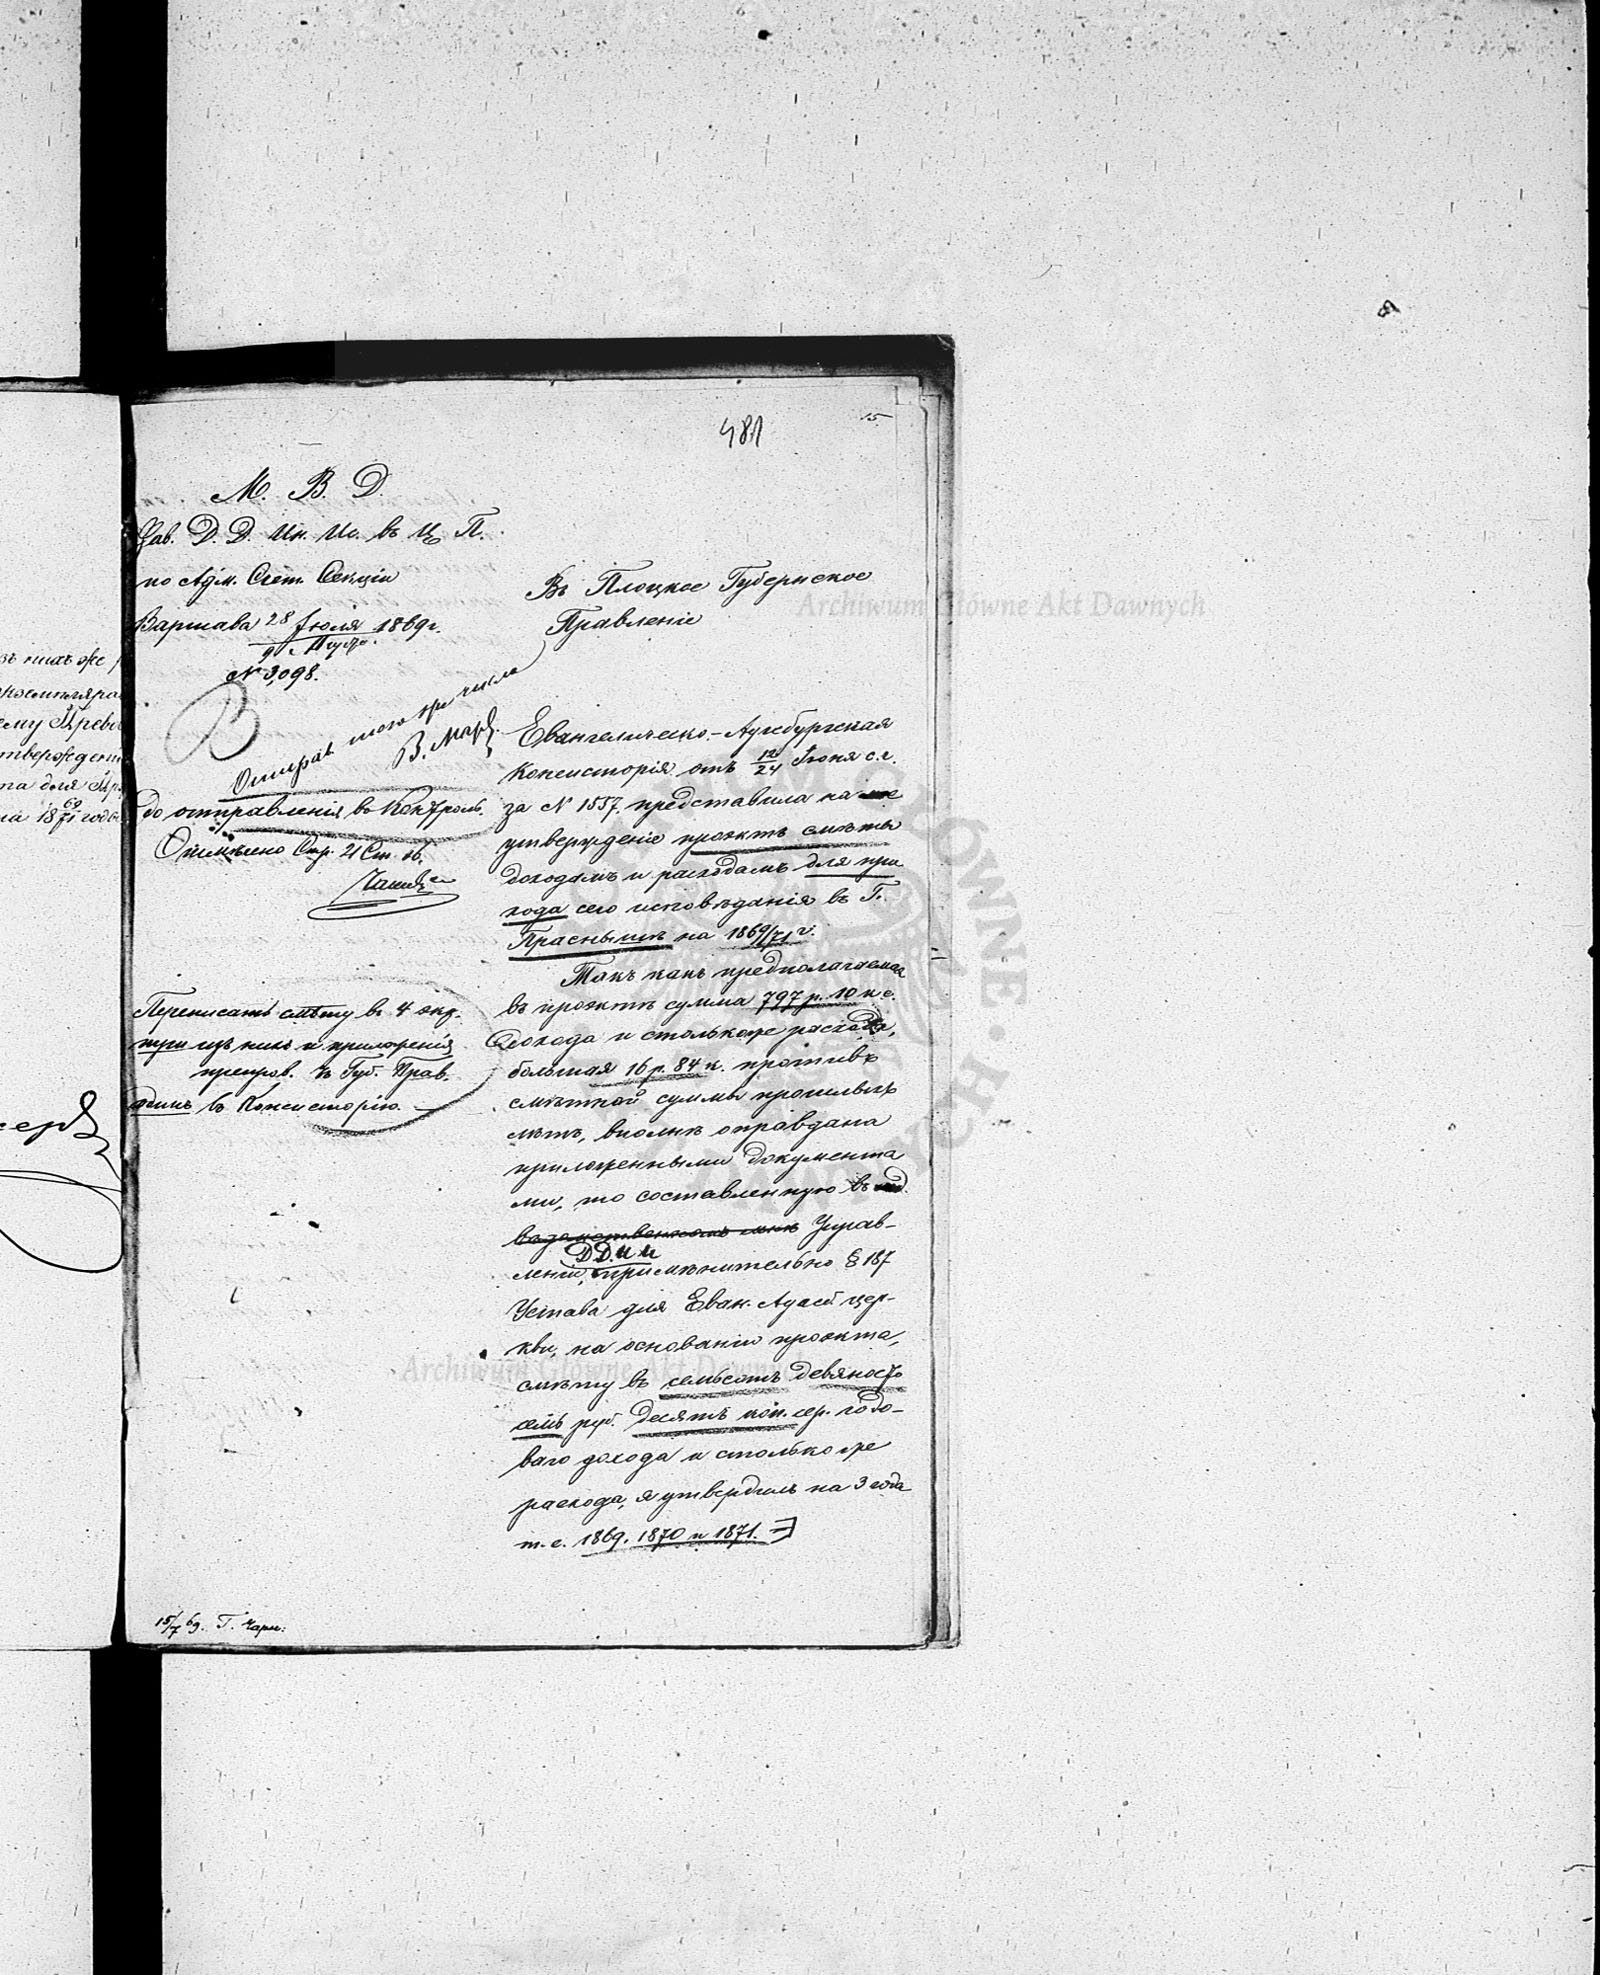 481
15
М. В. Д.
Зав. Д. Д. Ин. Ис. въ Ц. П.
по Адм. Счет. Секціи
Варшава 28 Іюля 1869 г.
9 Авгус.
№ 3,098.
Въ Плоцкое Губернское
Правленіе
того же числа
до отправленія въ Контроль.
Отмѣчено Стр. 21 Ст. 16.
Переписать смѣту въ 4 экз.
три изъ нихъ и приложенія
препров. въ Губ. Прав.
одинъ въ Консисторію.
Евангелическо-Аугсбургская
Консисторія отъ 12/24 Іюня с. г.
за № 1557. представила на
утвержденіе проэктъ смѣты
доходамъ и расходамъ для при
хода сего исповѣданія въ Г.
Праснышѣ на 1869/71 г.
Такъ какъ предполагаемая
въ проэктѣ сумма 797 р. 10 к. с.
дохода и столькоже расхода,
большая 16 р. 84 к. противъ
смѣтной суммы прошлыхъ
лѣтъ, вполнѣ оправдана
приложенными документа
ми, то составленную въ
Управ-
Д. Д. И. И.
леніи, примѣнительно § 187
Устава для Еван. Аугсб. цер-
кви, на основаніи проэкта,
смѣту въ семьсотъ девяносто
семь руб. десять коп. сер. годо-
ваго дохода и столько же
расхода, я утвердилъ на 3 года
т. е. 1869, 1870 и 1871.
15/7 69. Г. Чарн:
въ нихъ же
на 18 69/71 годы
Archiwum Główne Akt Dawnych
Archiwum Główne Akt Dawnych